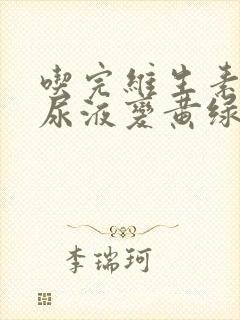 喫完維生素
尿液變黃綠
李瑞珂